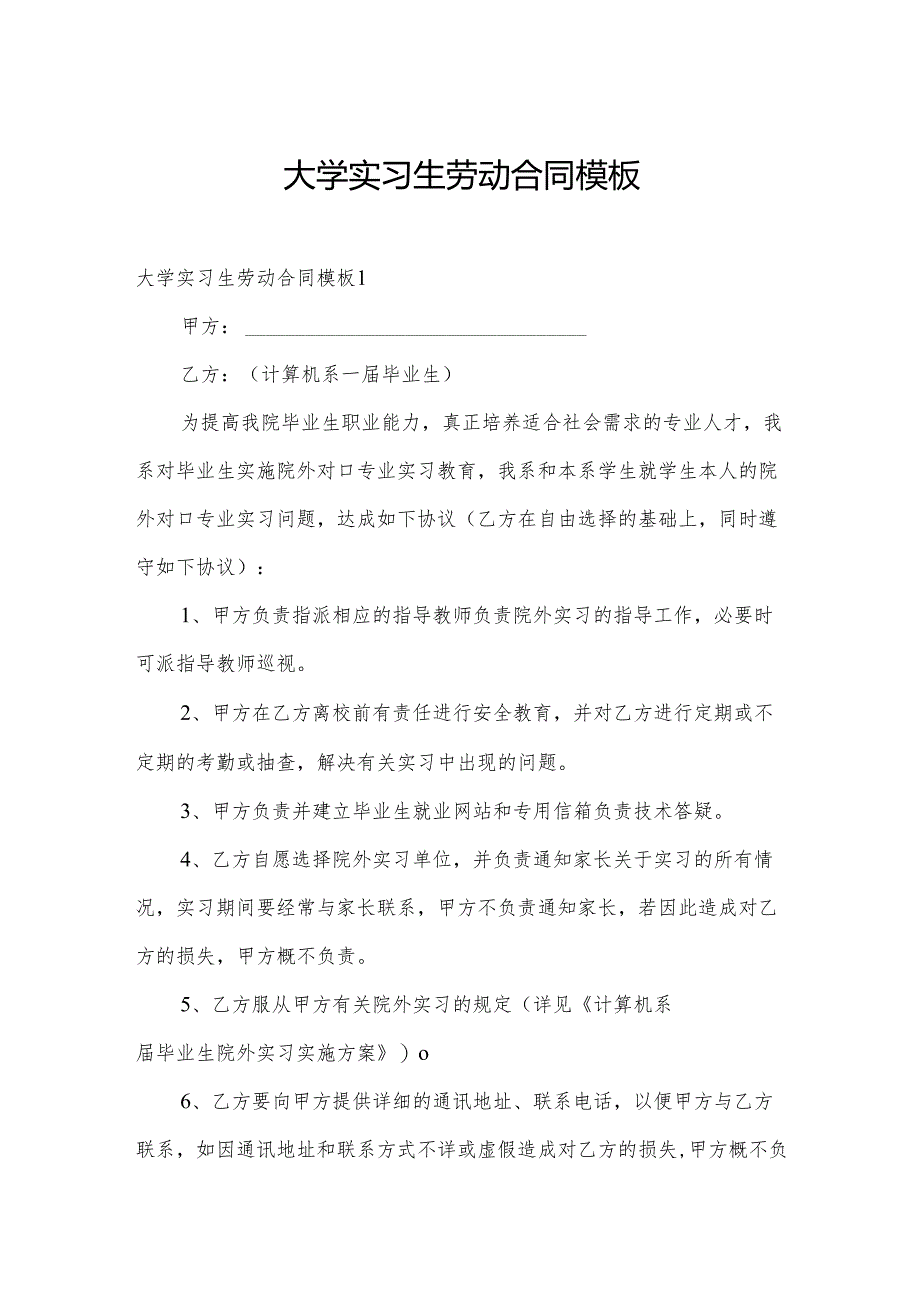 大学实习生劳动合同模板
大学实习生劳动合同模板1
甲方：__________________________________
乙方：（计算机系一届毕业生）
为提高我院毕业生职业能力，真正培养适合社会需求的专业人才，我
系对毕业生实施院外对口专业实习教育，我系和本系学生就学生本人的院
外对口专业实习问题，达成如下协议（乙方在自由选择的基础上，同时遵
守如下协议）：
1、甲方负责指派相应的指导教师负责院外实习的指导工作，必要时
可派指导教师巡视。
2、甲方在乙方离校前有责任进行安全教育，并对乙方进行定期或不
定期的考勤或抽查，解决有关实习中出现的问题。
3、甲方负责并建立毕业生就业网站和专用信箱负责技术答疑。
4、乙方自愿选择院外实习单位，并负责通知家长关于实习的所有情
况，实习期间要经常与家长联系，甲方不负责通知家长，若因此造成对乙
方的损失，甲方概不负责。
5、乙方服从甲方有关院外实习的规定（详见《计算机系
届毕业生院外实习实施方案》）o
6、乙方要向甲方提供详细的通讯地址、联系电话，以便甲方与乙方
联系，如因通讯地址和联系方式不详或虚假造成对乙方的损失,甲方概不负